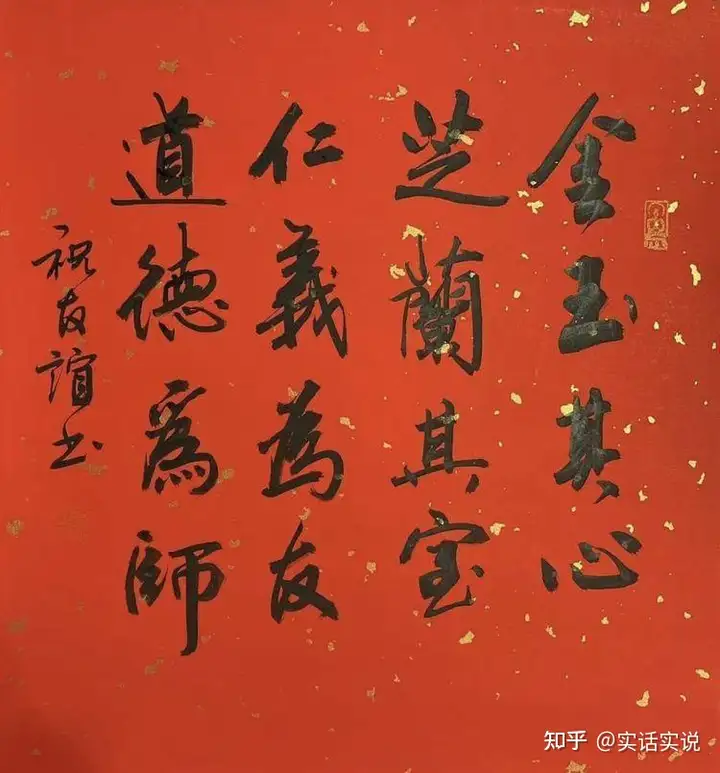 金玉其心
芝蘭其室
仁義為友
道德爲師
祝友誼书
知乎 @实话实说